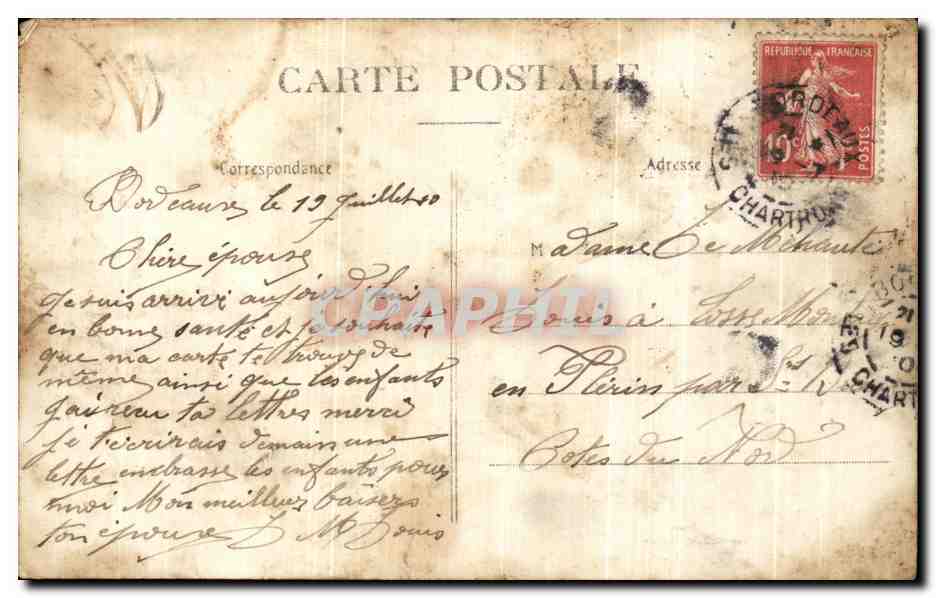 CARTE POSTALE
REPUBLIQUE FRANÇAISE
10c
POSTES
BORDEAUX
CHARTRONS
Correspondance
Adresse
Bordeaux le 19 Juillet 10
Chère épouse
Je suis arrivi aujourd'hui
en bonne santé et je souhaite
que ma carte te trouve de
même ainsi que les enfants
j'ai reçu ta lettres merci
je t'écrirais demain une
lettre enbrasse les enfants pour
moi Mon meilleur baisers
ton épouse L M Louis
Madame Le Méhauté
Louis à Cosse
en Plérin par St B
Cotes du Nord
BO
21
19
CHART
CPAPHIL